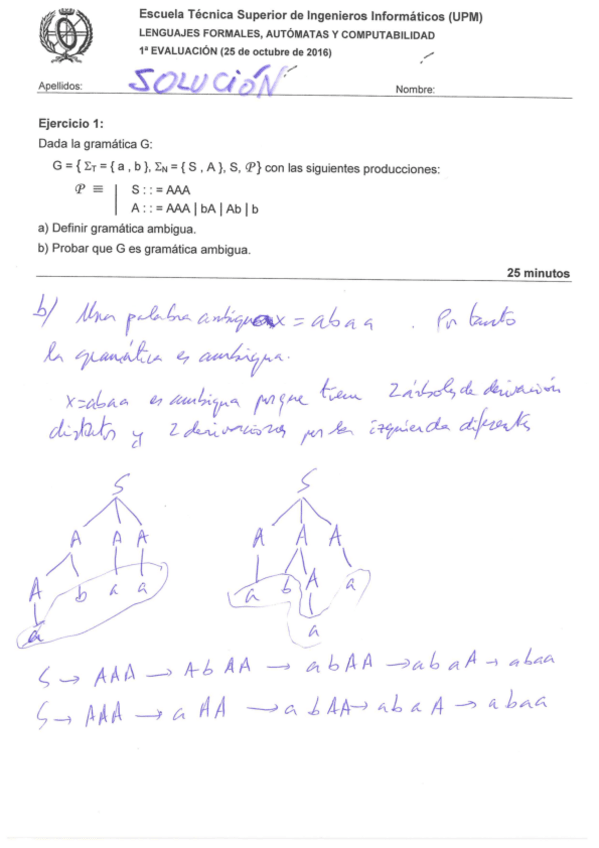 Escuela Técnica Superior de Ingenieros Informáticos (UPM)
LENGUAJES FORMALES, AUTÓMATAS Y COMPUTABILIDAD
1ª EVALUACIÓN (25 de octubre de 2016)
Apellidos: SOLUCIÓN Nombre:
Ejercicio 1:
Dada la gramática G:
G = { ΣT = { a , b }, ΣN = { S , A }, S, 𝒫 } con las siguientes producciones:
𝒫 ≡ | S : : = AAA
| A : : = AAA | bA | Ab | b
a) Definir gramática ambigua.
b) Probar que G es gramática ambigua.
25 minutos
b) Una palabra ambigua x = abaa . Por tanto
la gramática es ambigua.
x=abaa es ambigua porque tiene 2 árboles de derivación
distintos y 2 derivaciones por la izquierda diferentes
S S
A A A A A A
A b a a a b A a
a a
S → AAA → AbAA → abAA → abaA → abaa
S → AAA → aAA → abAA → abaA → abaa